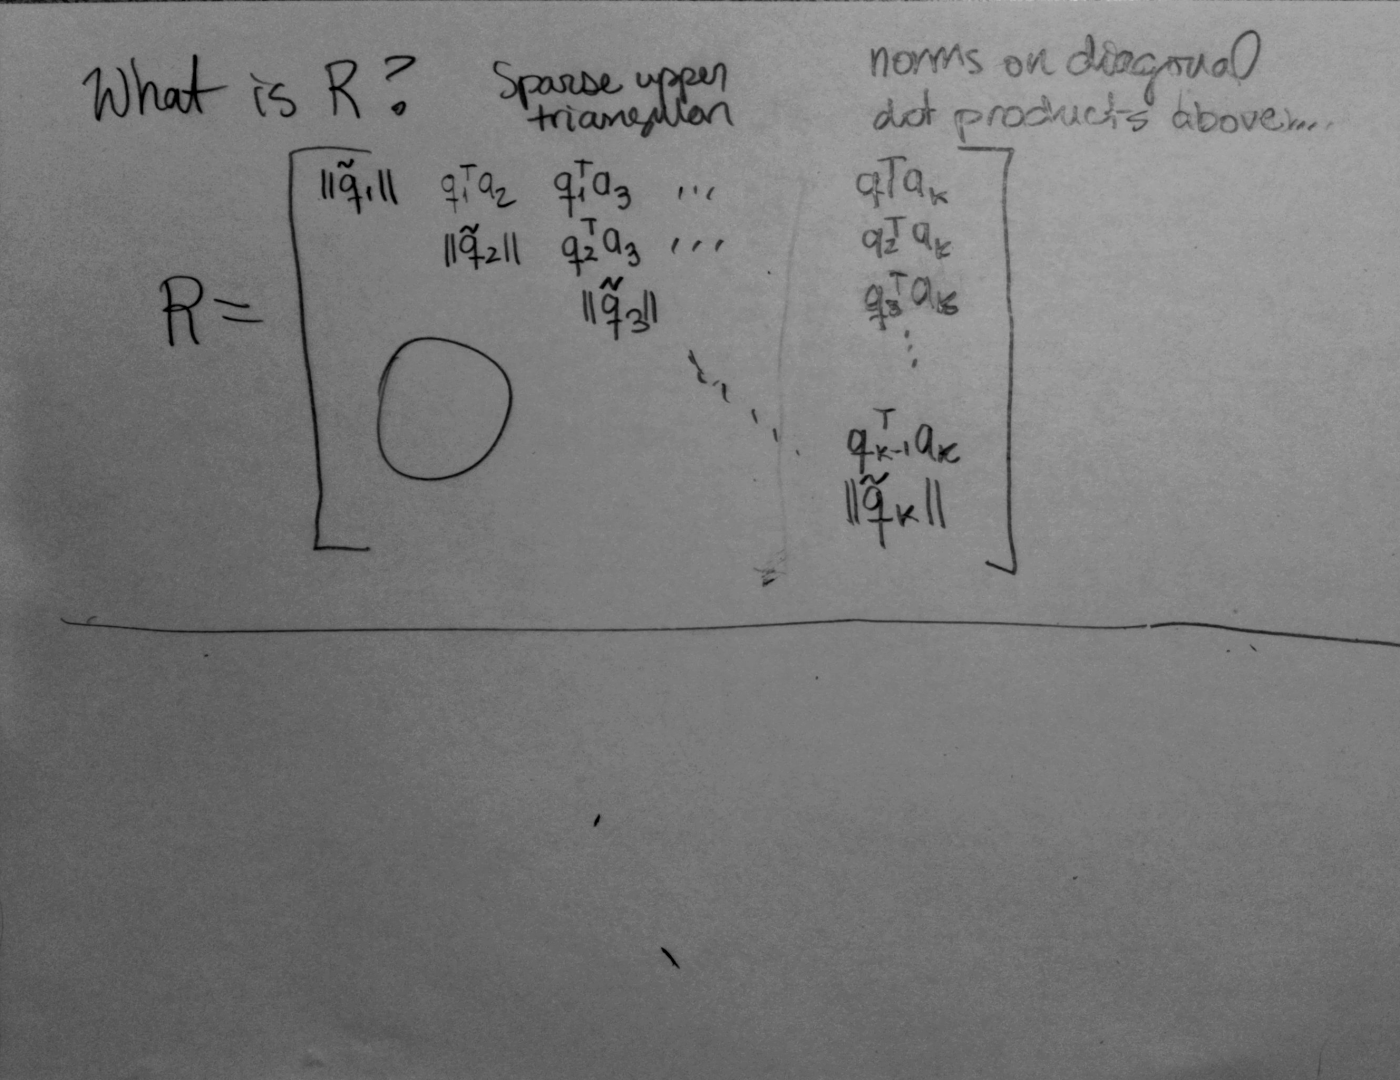 What is R?
Sparse upper
triangular
norms on diagonal
dot products above...
R =
‖q̃₁‖ q₁ᵀa₂ q₁ᵀa₃ ... qᵀaₖ
‖q̃₂‖ q₂ᵀa₃ ... q₂ᵀaₖ
‖q̃₃‖ q₃ᵀaₖ
⋮
qₖ₋₁ᵀaₖ
‖q̃ₖ‖